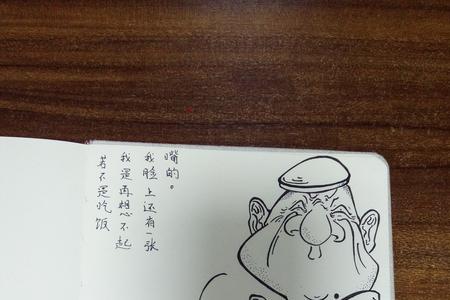 若不是吃饭
我是再想不起
我脸上还有一张
嘴的。